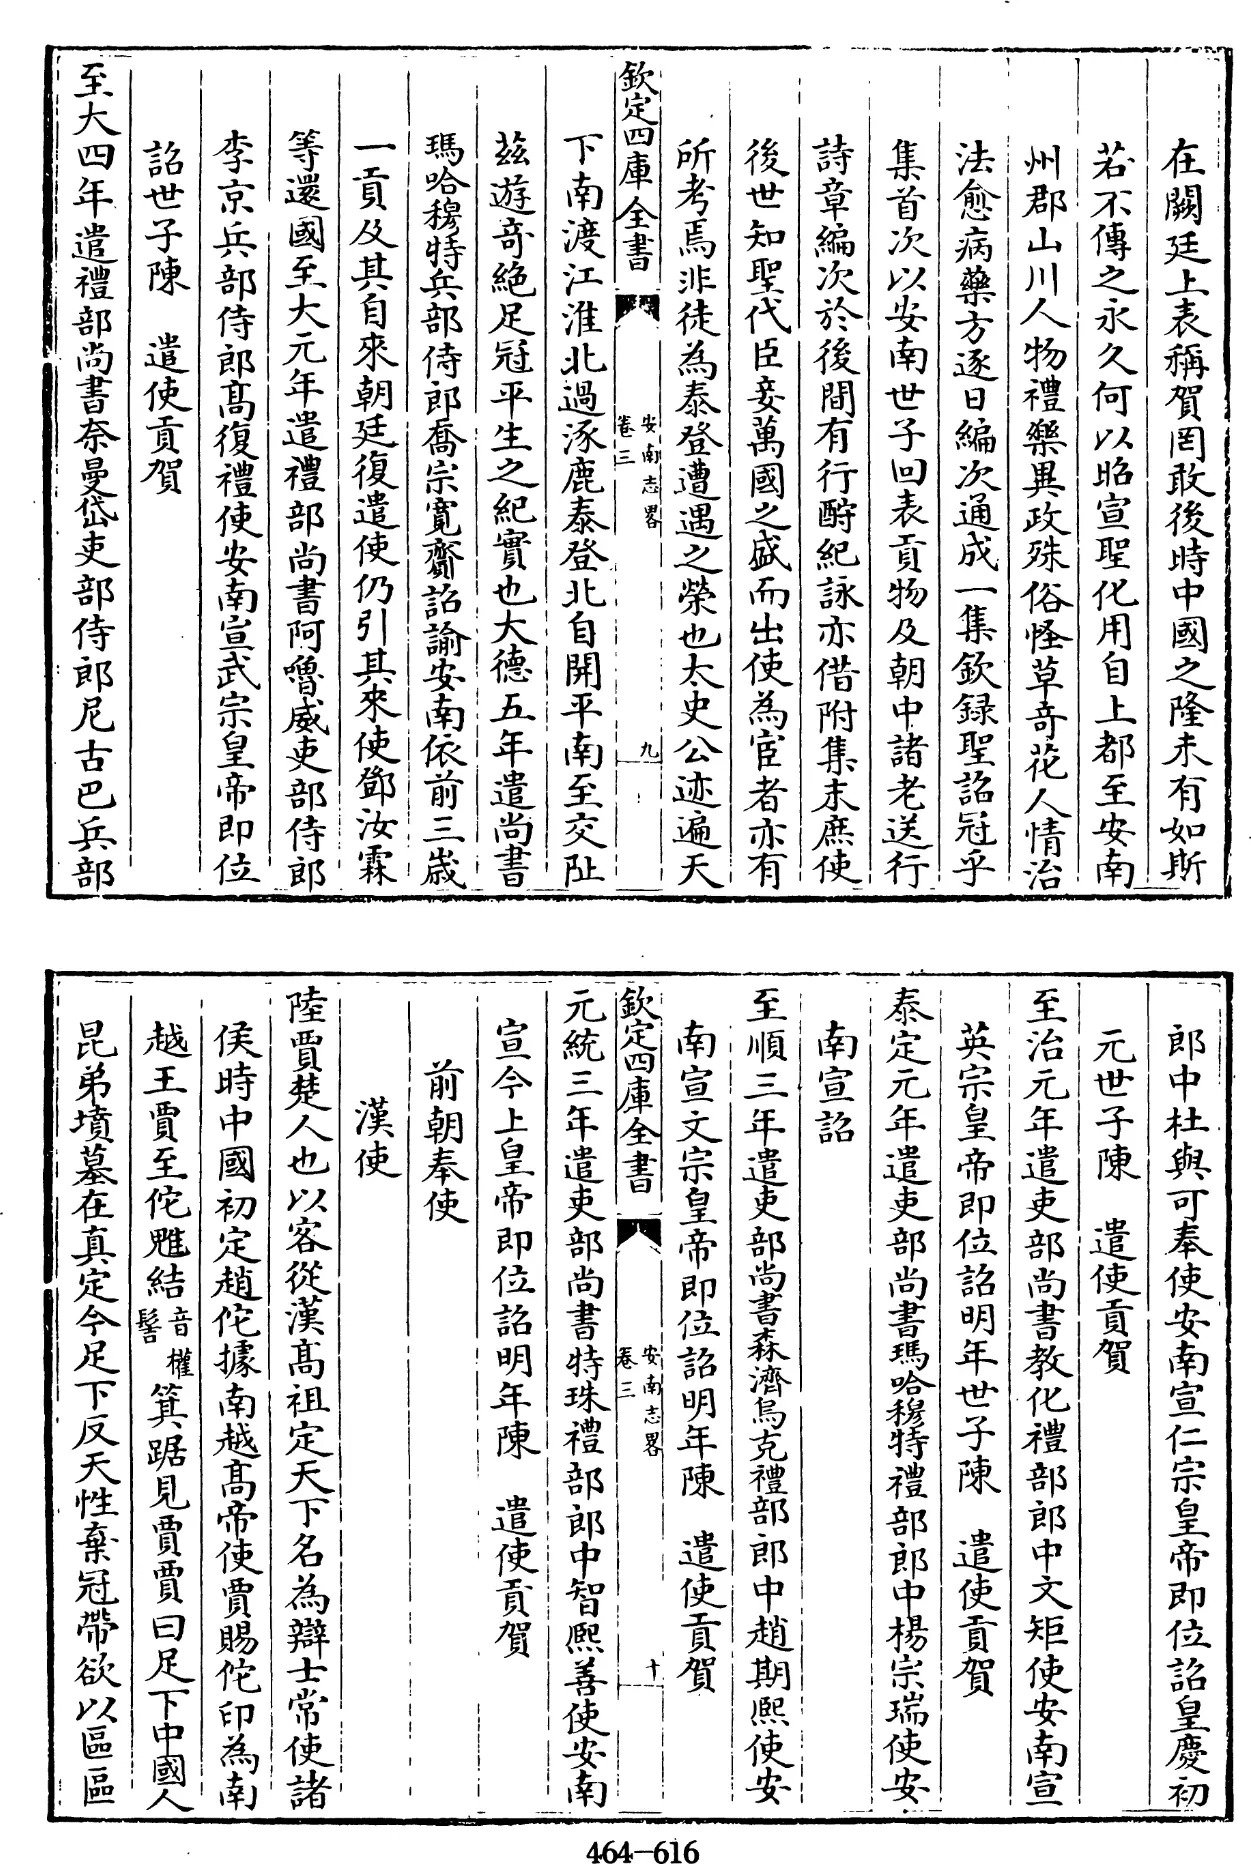 在闕廷上表稱賀罔敢後時中國之隆未有如斯
若不傳之永久何以昭宣聖化用自上都至安南
州郡山川人物禮樂異政殊俗怪草奇花人情治
法愈病藥方逐日編次通成一集欽録聖詔冠乎
集首次以安南世子回表貢物及朝中諸老送行
詩章編次於後間有行酧紀詠亦借附集末庶使
後世知聖代臣妾萬國之盛而出使為宦者亦有
所考焉非徒為泰登遭遇之榮也太史公迹遍天
欽定四庫全書
安南志畧
卷三
九
下南渡江淮北過涿鹿泰登北自開平南至交趾
茲遊奇絶足冠平生之紀實也大德五年遣尚書
瑪哈穆特兵部侍郎喬宗寛齎詔諭安南依前三歳
一貢及其自來朝廷復遣使仍引其來使鄧汝霖
等還國至大元年遣禮部尚書阿嚕威吏部侍郎
李京兵部侍郎髙復禮使安南宣武宗皇帝即位
詔世子陳　遣使貢賀
至大四年遣禮部尚書奈曼岱吏部侍郎尼古巴兵部
郎中杜與可奉使安南宣仁宗皇帝即位詔皇慶初
元世子陳　遣使貢賀
至治元年遣吏部尚書教化禮部郎中文矩使安南宣
英宗皇帝即位詔明年世子陳　遣使貢賀
泰定元年遣吏部尚書瑪哈穆特禮部郎中楊宗瑞使安
南宣詔
至順三年遣吏部尚書森濟烏克禮部郎中趙期熙使安
南宣文宗皇帝即位詔明年陳　遣使貢賀
欽定四庫全書
安南志畧
卷三
十
元統三年遣吏部尚書特珠禮部郎中智熙善使安南
宣今上皇帝即位詔明年陳　遣使貢賀
前朝奉使
漢使
陸賈楚人也以客從漢髙祖定天下名為辯士常使諸
侯時中國初定趙佗據南越髙帝使賈賜佗印為南
越王賈至佗魋結音椎髻箕踞見賈賈曰足下中國人
昆弟墳墓在真定今足下反天性棄冠帶欲以區區
464-616